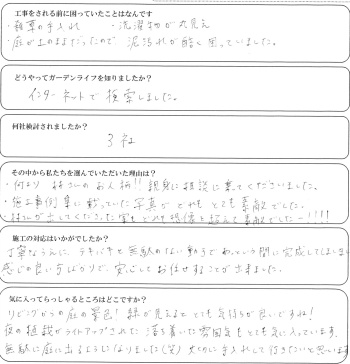 工事をされる前に困っていたことはなんです
・雑草の手入れ ・洗濯物が丸見え
・庭が土のままだったので 泥汚れが酷く困っていました。
どうやってガーデンライフを知りましたか?
インターネットで検索しました。
何社検討されましたか?
3社
その中から私たちを選んでいただいた理由は?
・何より 林さんのお人柄!! 親身に相談に乗てくださいました。
・施工事例集に載っていた写真がどれもとても素敵でした。
・林さんが出してくださった案もどれも想像を超えて素敵でしたー!!!!
施工の対応はいかがでしたか?
丁寧ながらに、テキパキと無駄のない動きであっという間に完成してしまいまし
感じの良い方ばかりで、安心してお任せすることが出来ました。
気に入ってもらっしゃるところはどこですか?
リビングからの庭の景色! 緑が見えるととても気持ちが良いですね!
夜の植栽がライトアップされた落ち着いた雰囲気もとても気に入っています。
無駄に庭に出るようになりました(笑) 大切に手入れして行きたいと思います